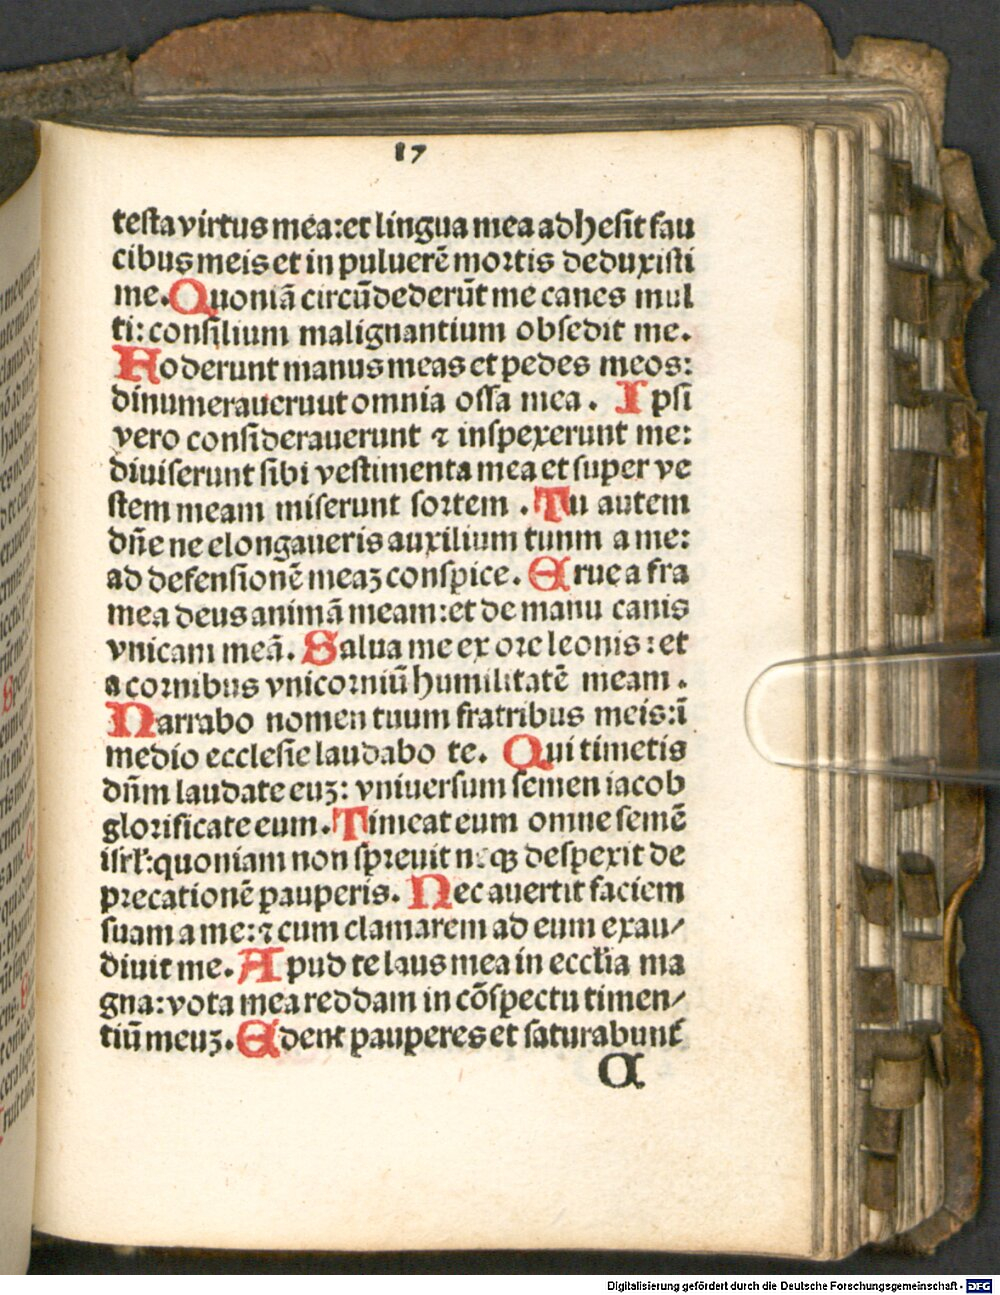 17
testa virtus mea: et lingua mea adhesit fau
cibus meis et in puluerē mortis deduxisti
me. Quoniā circūdederūt me canes mul
ti: consilium malignantium obsedit me.
Foderunt manus meas et pedes meos:
dinumerauerunt omnia ossa mea. Ipsi
vero considerauerunt ⁊ inspexerunt me:
diuiserunt sibi vestimenta mea et super ve
stem meam miserunt sortem. Tu autem
dñe ne elongaueris auxilium tuum a me:
ad defensionē meaꝫ conspice. Erue a fra
mea deus animā meam: et de manu canis
vnicam meā. Salua me ex ore leonis: et
a cornibus vnicorniū humilitatē meam.
Narrabo nomen tuum fratribus meis: ī
medio ecclesie laudabo te. Qui timetis
dñm laudate euꝫ: vniuersum semen iacob
glorificate eum. Timeat eum omne semē
isrl': quoniam non spreuit neqꝫ despexit de
precationē pauperis. Nec auertit faciem
suam a me: ⁊ cum clamarem ad eum exau/
diuit me. Apud te laus mea in eccl'ia ma
gna: vota mea reddam in cōspectu timen/
tiū meuꝫ. Edent pauperes et saturabunt
a
Digitalisierung gefördert durch die Deutsche Forschungsgemeinschaft - DFG